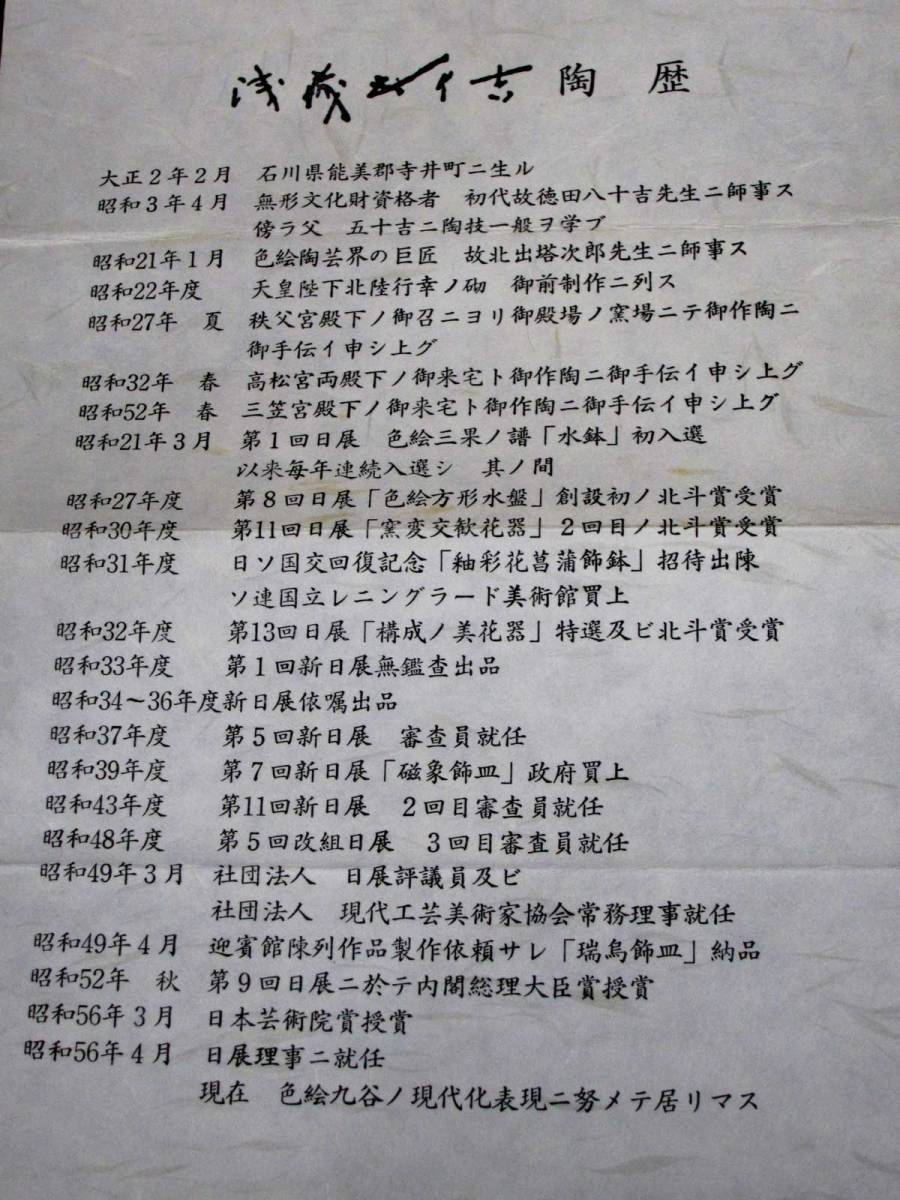 浅蔵五十吉 陶歴
大正2年2月 石川県能美郡寺井町ニ生ル
昭和3年4月 無形文化財資格者 初代故徳田八十吉先生ニ師事ス
傍ラ父 五十吉ニ陶技一般ヲ学ブ
昭和21年1月 色絵陶芸界の巨匠 故北出塔次郎先生ニ師事ス
昭和22年度 天皇陛下北陸行幸ノ砌 御前制作ニ列ス
昭和27年 夏 秩父宮殿下ノ御召ニヨリ御殿場ノ窯場ニテ御作陶ニ
御手伝イ申シ上グ
昭和32年 春 高松宮両殿下ノ御来宅ト御作陶ニ御手伝イ申シ上グ
昭和52年 春 三笠宮殿下ノ御来宅ト御作陶ニ御手伝イ申シ上グ
昭和21年3月 第1回日展 色絵三果ノ譜「水鉢」初入選
以来毎年連続入選シ 其ノ間
昭和27年度 第8回日展「色絵方形水盤」創設初ノ北斗賞受賞
昭和30年度 第11回日展「窯変交歓花器」2回目ノ北斗賞受賞
昭和31年度 日ソ国交回復記念「釉彩花菖蒲飾鉢」招待出陳
ソ連国立レニングラード美術館買上
昭和32年度 第13回日展「構成ノ美花器」特選及ビ北斗賞受賞
昭和33年度 第1回新日展無鑑査出品
昭和34～36年度新日展依嘱出品
昭和37年度 第5回新日展 審査員就任
昭和39年度 第7回新日展「磁象飾皿」政府買上
昭和43年度 第11回新日展 2回目審査員就任
昭和48年度 第5回改組日展 3回目審査員就任
昭和49年3月 社団法人 日展評議員及ビ
社団法人 現代工芸美術家協会常務理事就任
昭和49年4月 迎賓館陳列作品製作依頼サレ「瑞鳥飾皿」納品
昭和52年 秋 第9回日展ニ於テ内閣総理大臣賞授賞
昭和56年3月 日本芸術院賞授賞
昭和56年4月 日展理事ニ就任
現在 色絵九谷ノ現代化表現ニ努メテ居リマス